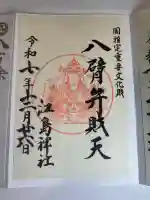 国指定重要文化財
八臂弁財天
江島神社
令和七年十二月廿八日